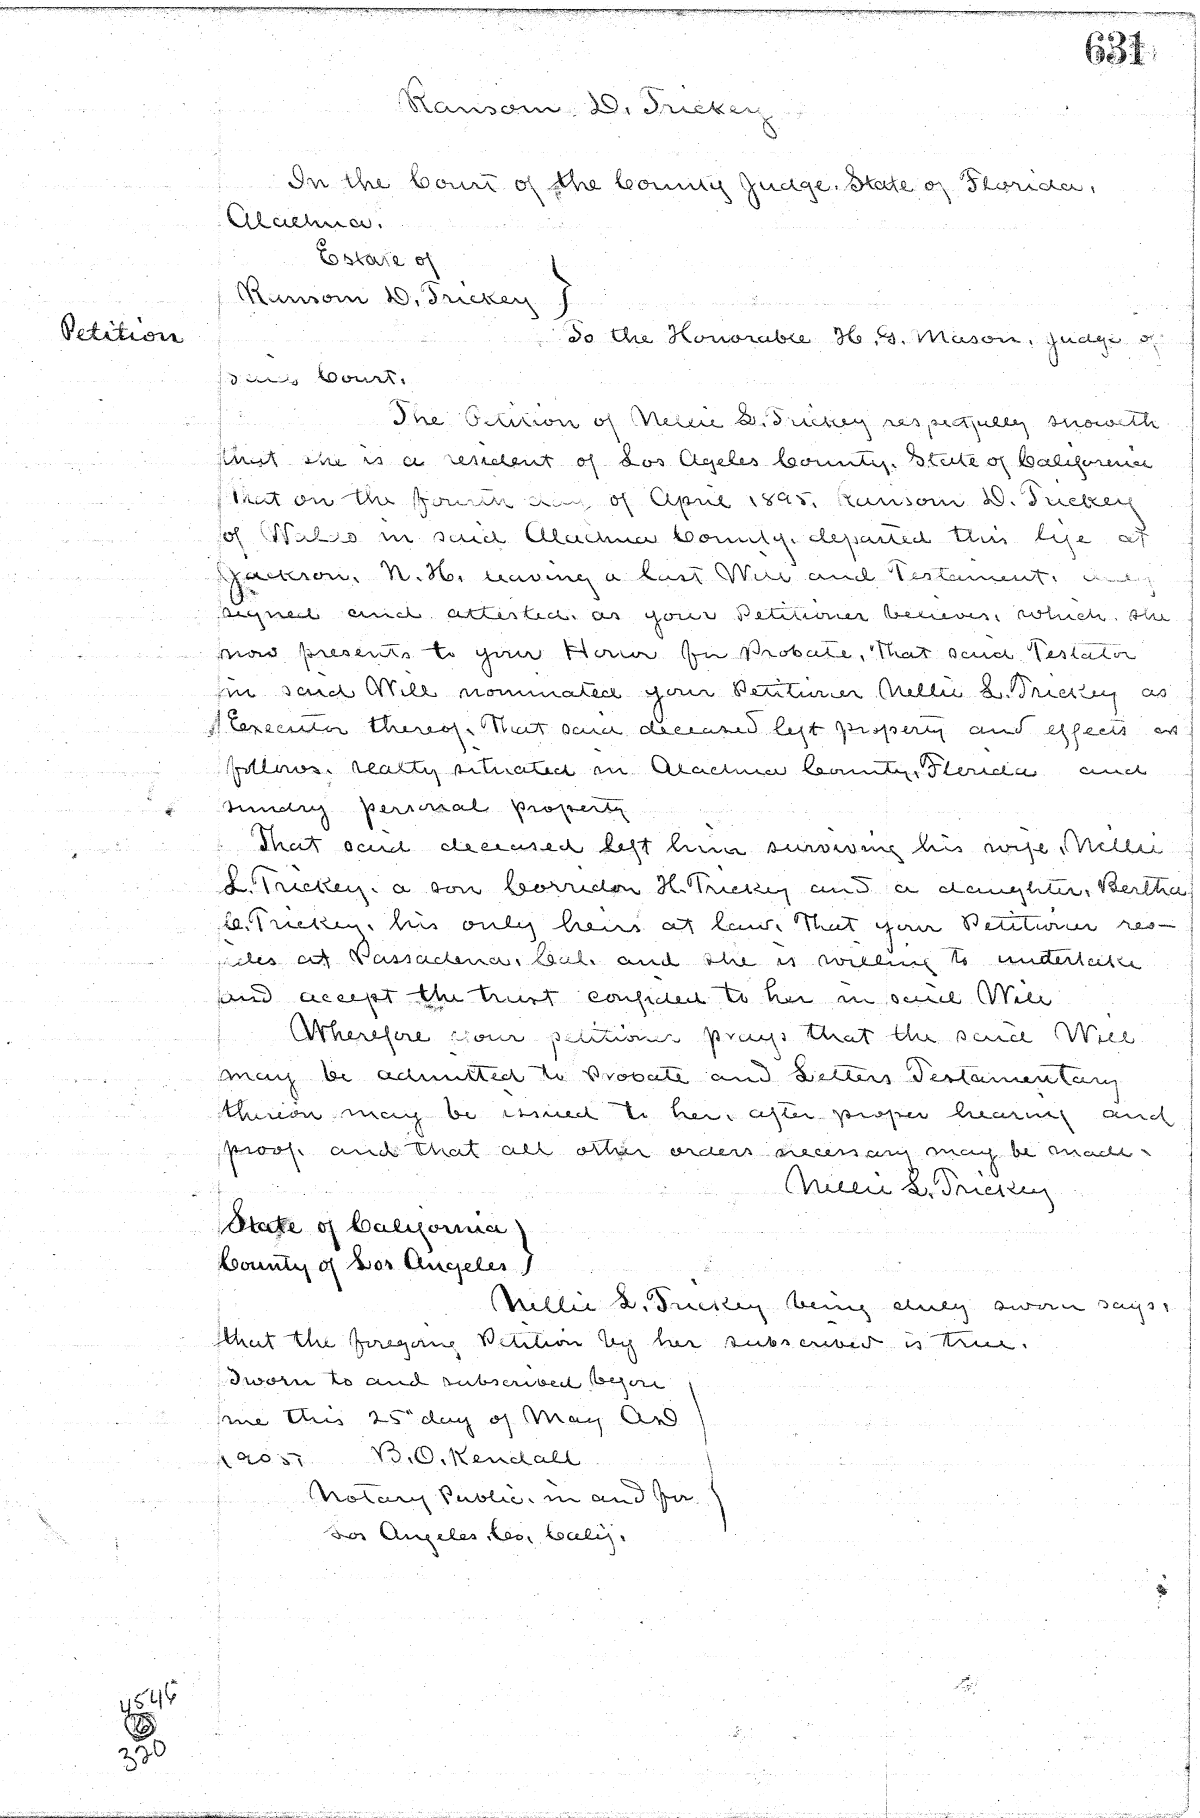 631
Ransom D. Trickey
In the Court of the County Judge, State of Florida,
Alachua.
Estate of
Ransom D. Trickey }
Petition
To the Honorable H. G. Mason, Judge of
said Court.
The Petition of Nellie L. Trickey respectfully showeth
that she is a resident of Los Ageles County, State of California
That on the fourth day of April 1895, Ransom D. Trickey
of Waldo in said Alachua County, departed this life at
Jackson, N. H. leaving a last Will and Testament, duly
signed and attested, as your Petitioner believes, which she
now presents to your Honor for Probate, That said Testator
in said Will nominated your Petitioner Nellie L. Trickey as
Executor thereof, That said deceased left property and effects as
follows, realty situated in Alachua County, Florida and
sundry personal property
That said deceased left him surviving his wife, Nellie
L. Trickey, a son Corridon H. Trickey and a daughter, Bertha
C. Trickey, his only heirs at law, That your Petitioner res-
ides at Passadena, Cal. and she is willing to undertake
and accept the trust confided to her in said Will
Wherefore your petitioner prays that the said Will
may be admitted to Probate and Letters Testamentary
thereon may be issued to her, after proper hearing and
proof, and that all other orders necessary may be made.
Nellie L. Trickey
State of California }
County of Los Angeles }
Nellie L. Trickey being duly sworn says,
that the foregoing Petition by her subscribed is true.
Sworn to and subscribed before
me this 25" day of May AD
1905. B. O. Kendall
Notary Public, in and for
Los Angeles, Co, Calif.
4546
320